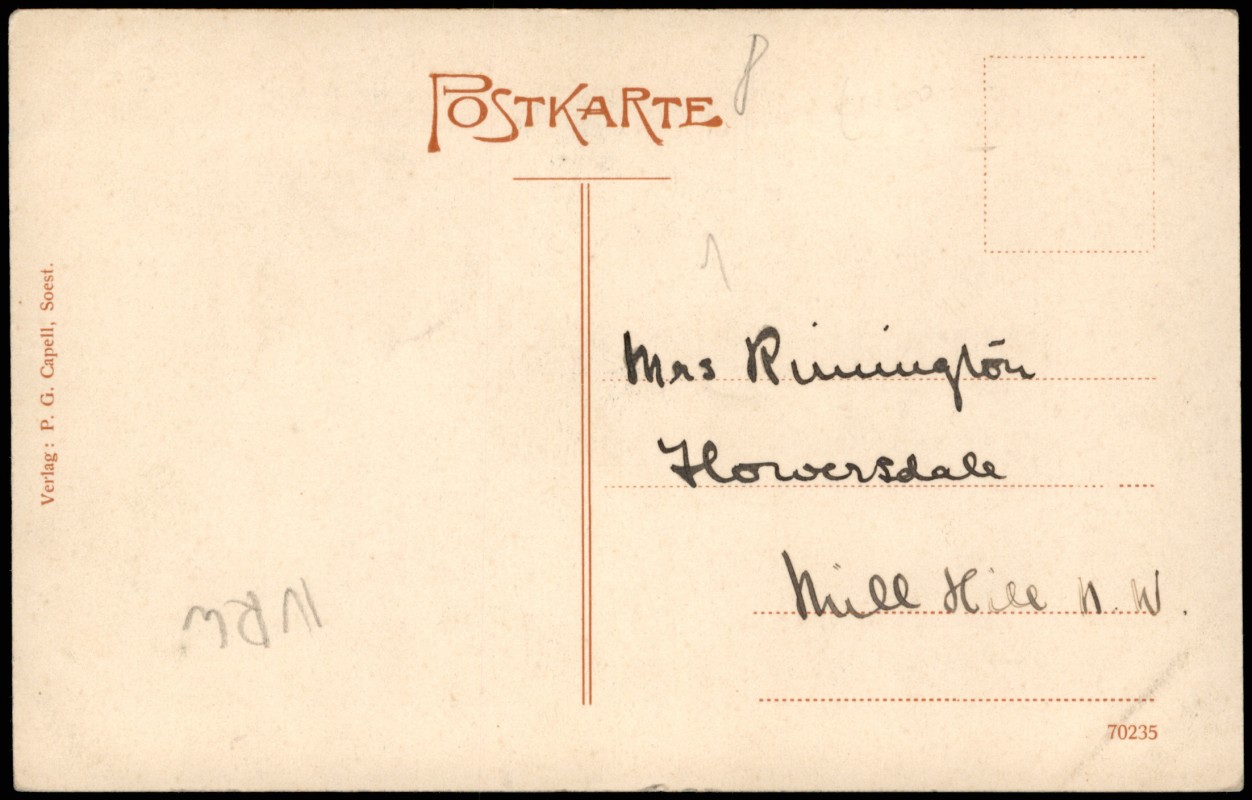 POSTKARTE
8
Verlag: P. G. Capell, Soest.
Mrs Rimington
Howersdale
Mill Hill N. W.
NRW
70235